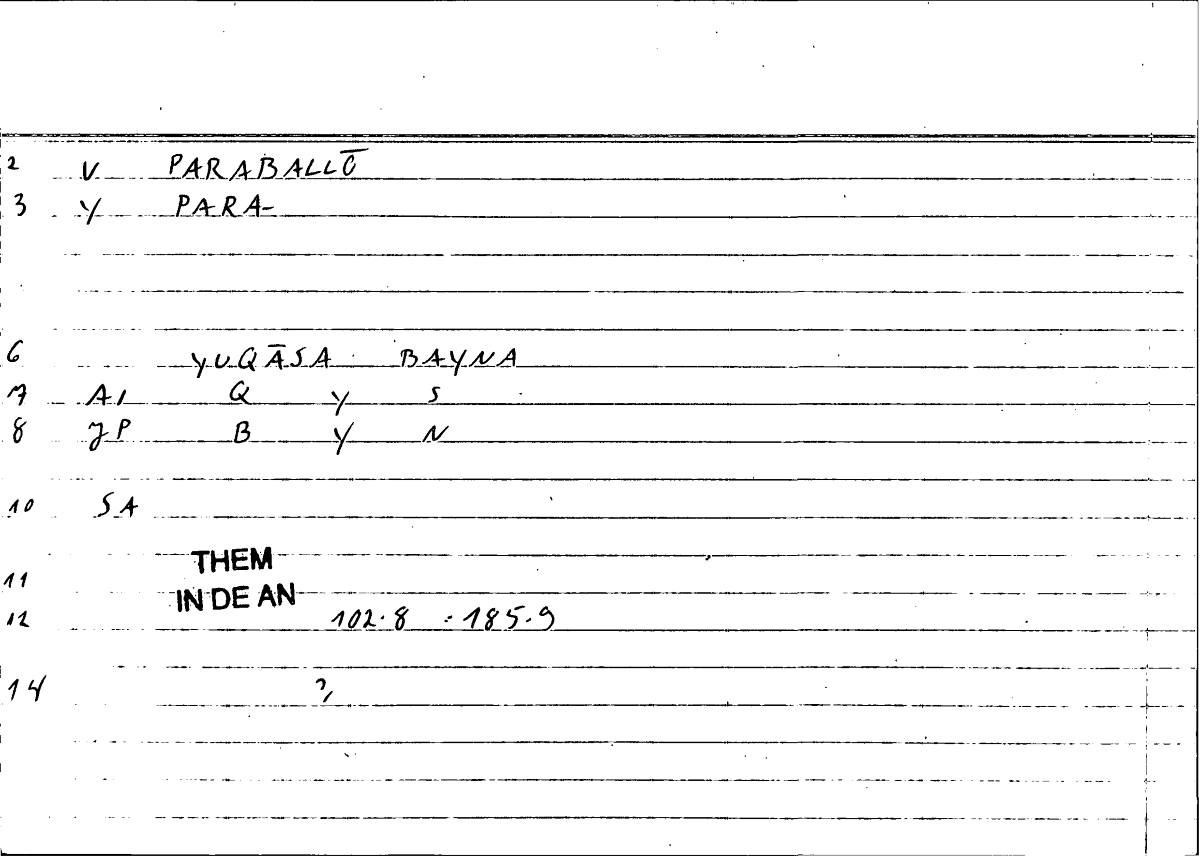 2 V PARABALLŌ
3 Y PARA-
6 YUQĀSA BAYNA
7 A1 Q Y S
8 JP B Y N
10 SA
THEM
11
IN DE AN
12 102.8 : 185.9
14 ?